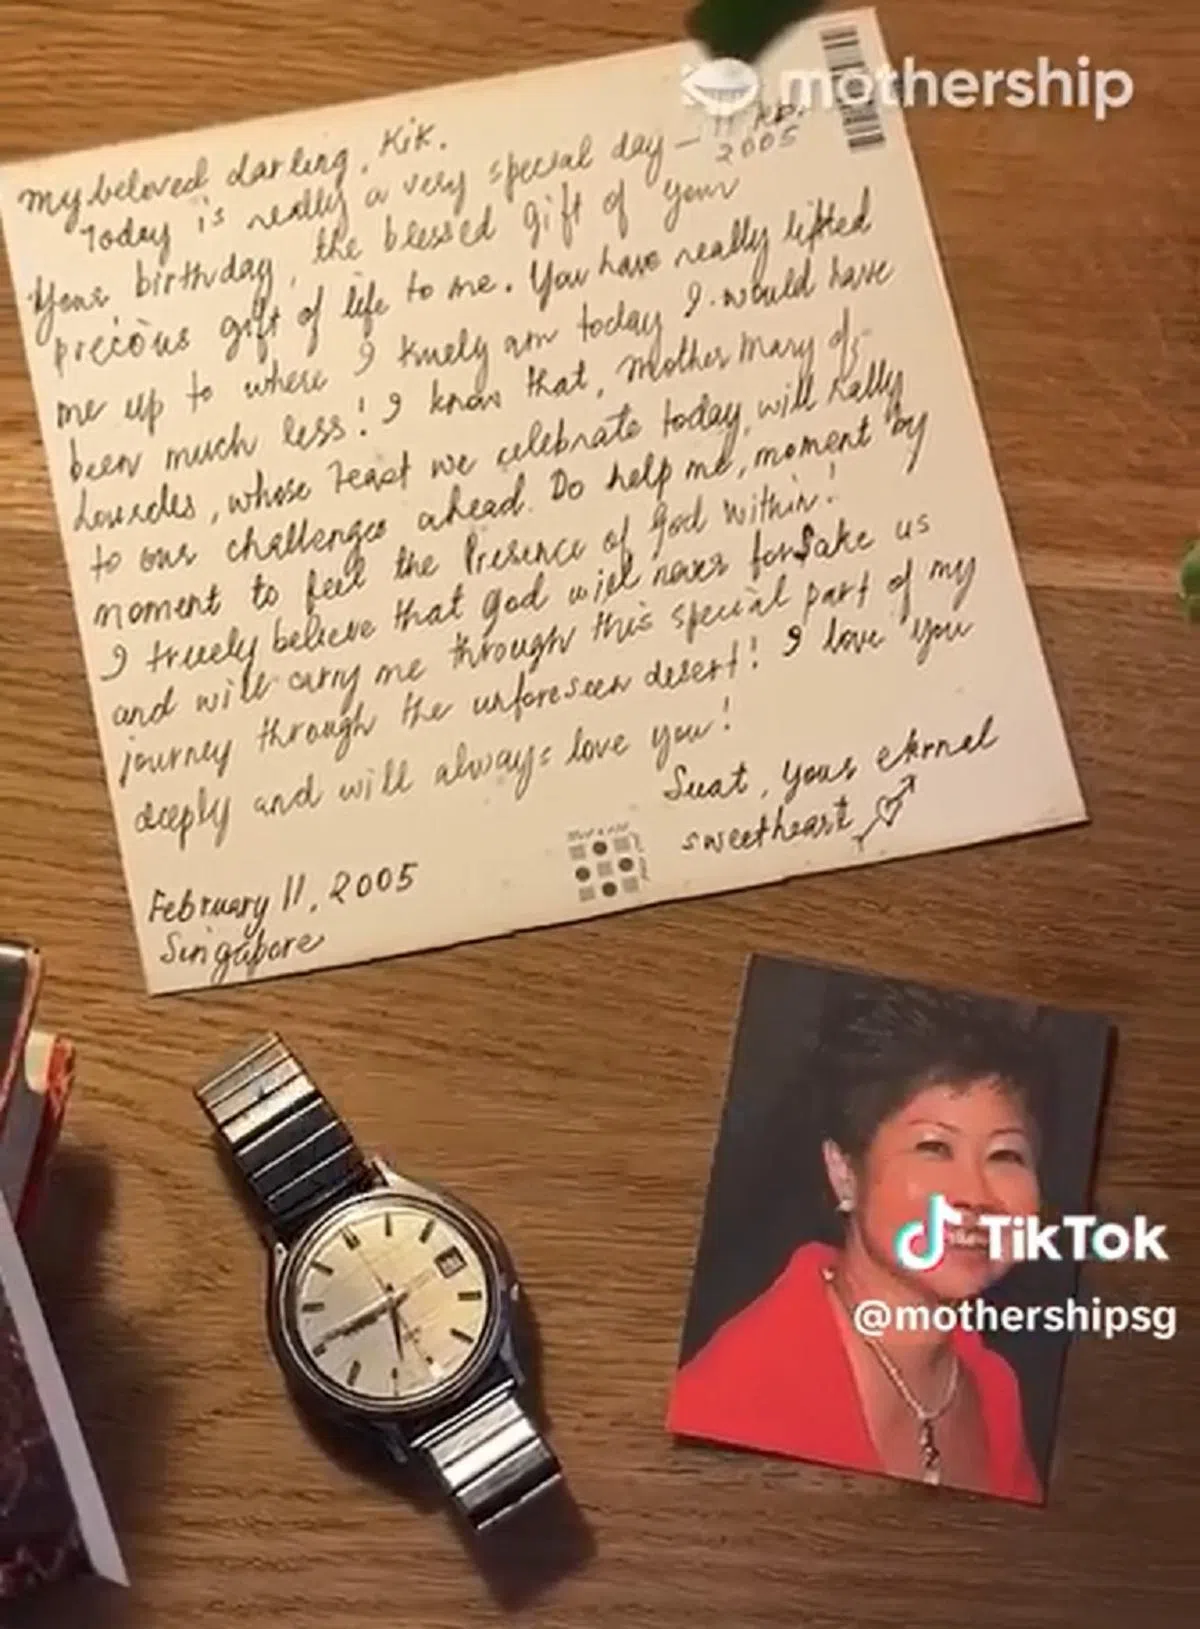 mothership
My beloved darling, Kik.
Today is really a very special day — 11 Feb. 2005
Your birthday, the blessed gift of your
precious gift of life to me. You have really lifted
me up to where I truely am today I would have
been much less! I know that, Mother Mary of
Lourdes, whose Feast we celebrate today, will rally
to our challenges ahead. Do help me, moment by
moment to feel the Presence of God within!
I truely believe that God will never forsake us
and will carry me through this special part of my
journey through the unforeseen desert! I love you
deeply and will always love you!
Suat, your eternal
sweetheart
February 11, 2005
Singapore
TikTok
@mothershipsg